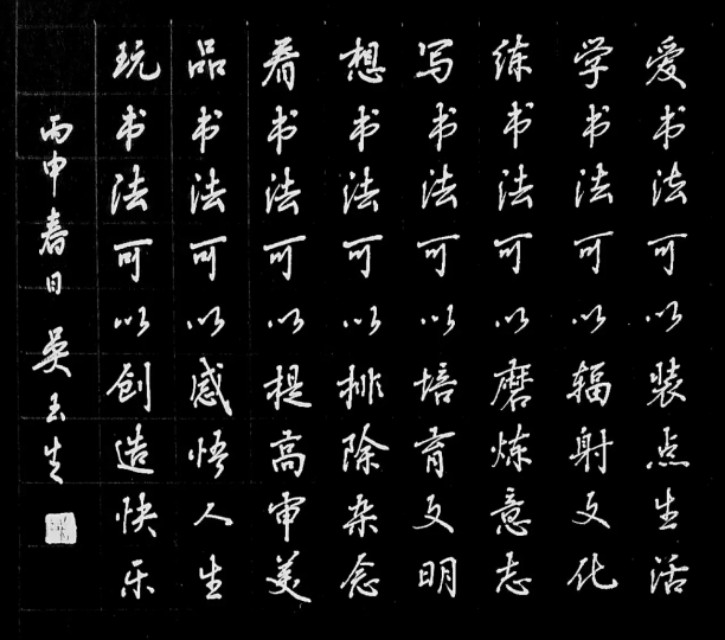 爱书法可以装点生活
学书法可以辐射文化
练书法可以磨炼意志
写书法可以培育文明
想书法可以排除杂念
看书法可以提高审美
品书法可以感悟人生
玩书法可以创造快乐
丙申春日 吴玉生